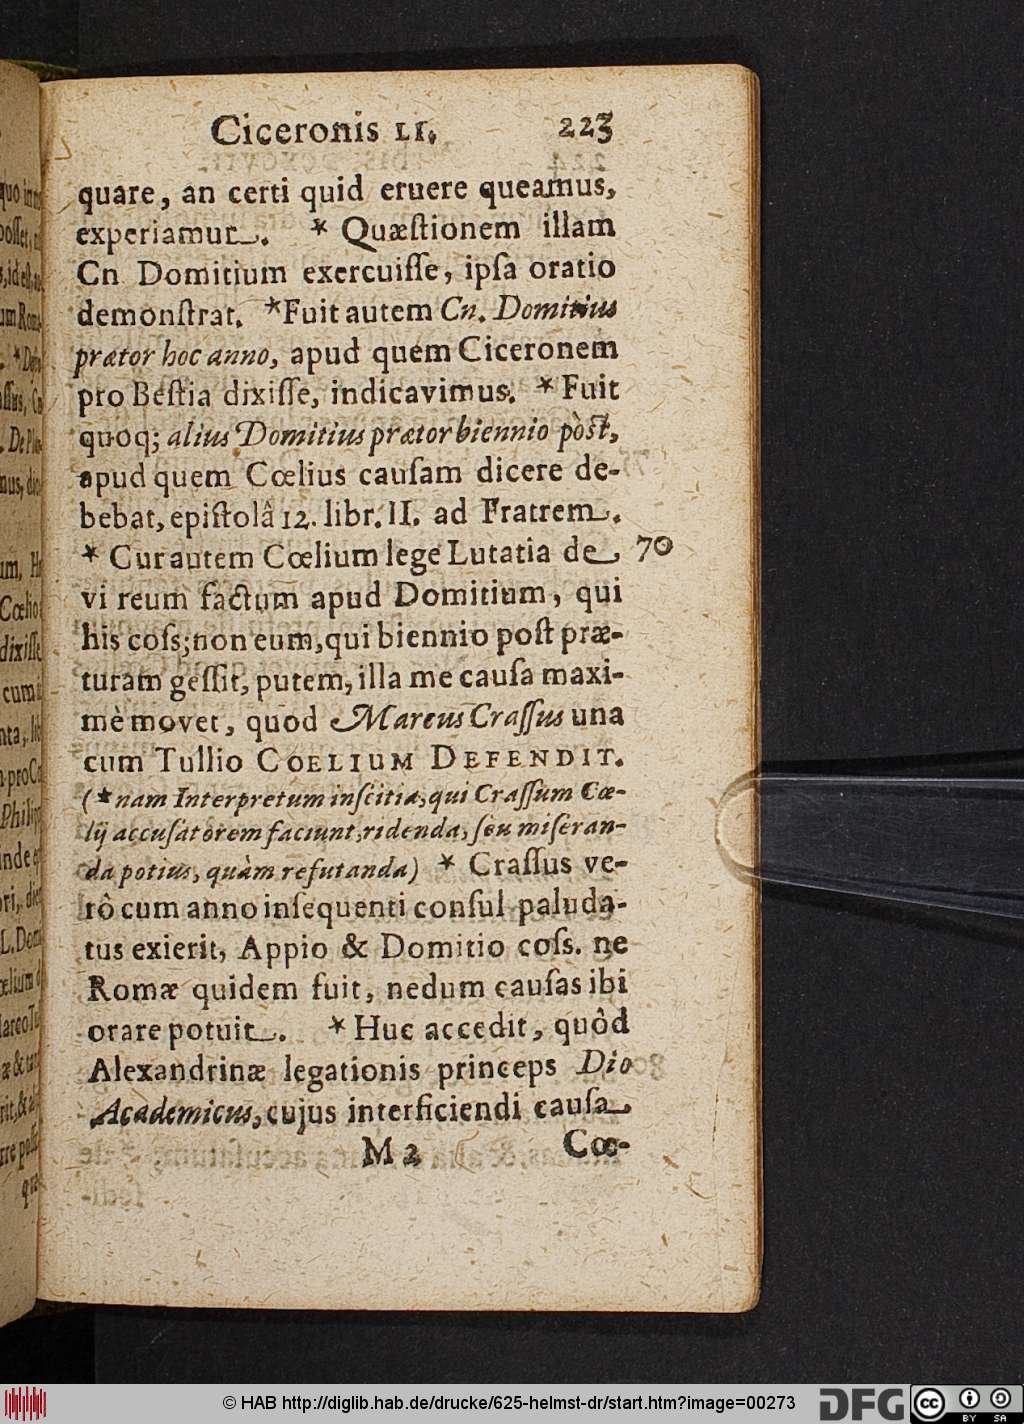 Ciceronis LI. 223
quare, an certi quid eruere queamus,
experiamur. * Quæſtionem illam
Cn Domitium exercuiſſe, ipſa oratio
demonſtrat. *Fuit autem Cn. Domitius
prætor hoc anno, apud quem Ciceronem
pro Beſtia dixiſſe, indicavimus. * Fuit
quoq; alius Domitius prætor biennio pòſt,
apud quem Cœlius cauſam dicere de-
bebat, epiſtolâ 12. libr. II. ad Fratrem.
* Cur autem Cœlium lege Lutatia de 70
vi reum factum apud Domitium, qui
his coſs; non eum, qui biennio poſt præ-
turam geſſit, putem, illa me cauſa maxi-
mè movet, quod Marcus Craſſus una
cum Tullio COELIUM DEFENDIT.
(* nam Interpretum inſcitia, qui Craſſum Cœ-
lij accuſatorem faciunt, ridenda, ſeu miſeran-
da potius, quàm refutanda) * Craſſus ve-
rô cum anno inſequenti conſul paluda-
tus exierit, Appio & Domitio coſs. ne
Romæ quidem fuit, nedum cauſas ibi
orare potuit. * Huc accedit, quôd
Alexandrinæ legationis princeps Dio
Academicus, cujus interficiendi cauſa
M 2 Cœ-
© HAB http://diglib.hab.de/drucke/625-helmst-dr/start.htm?image=00273
DFG
cc BY SA